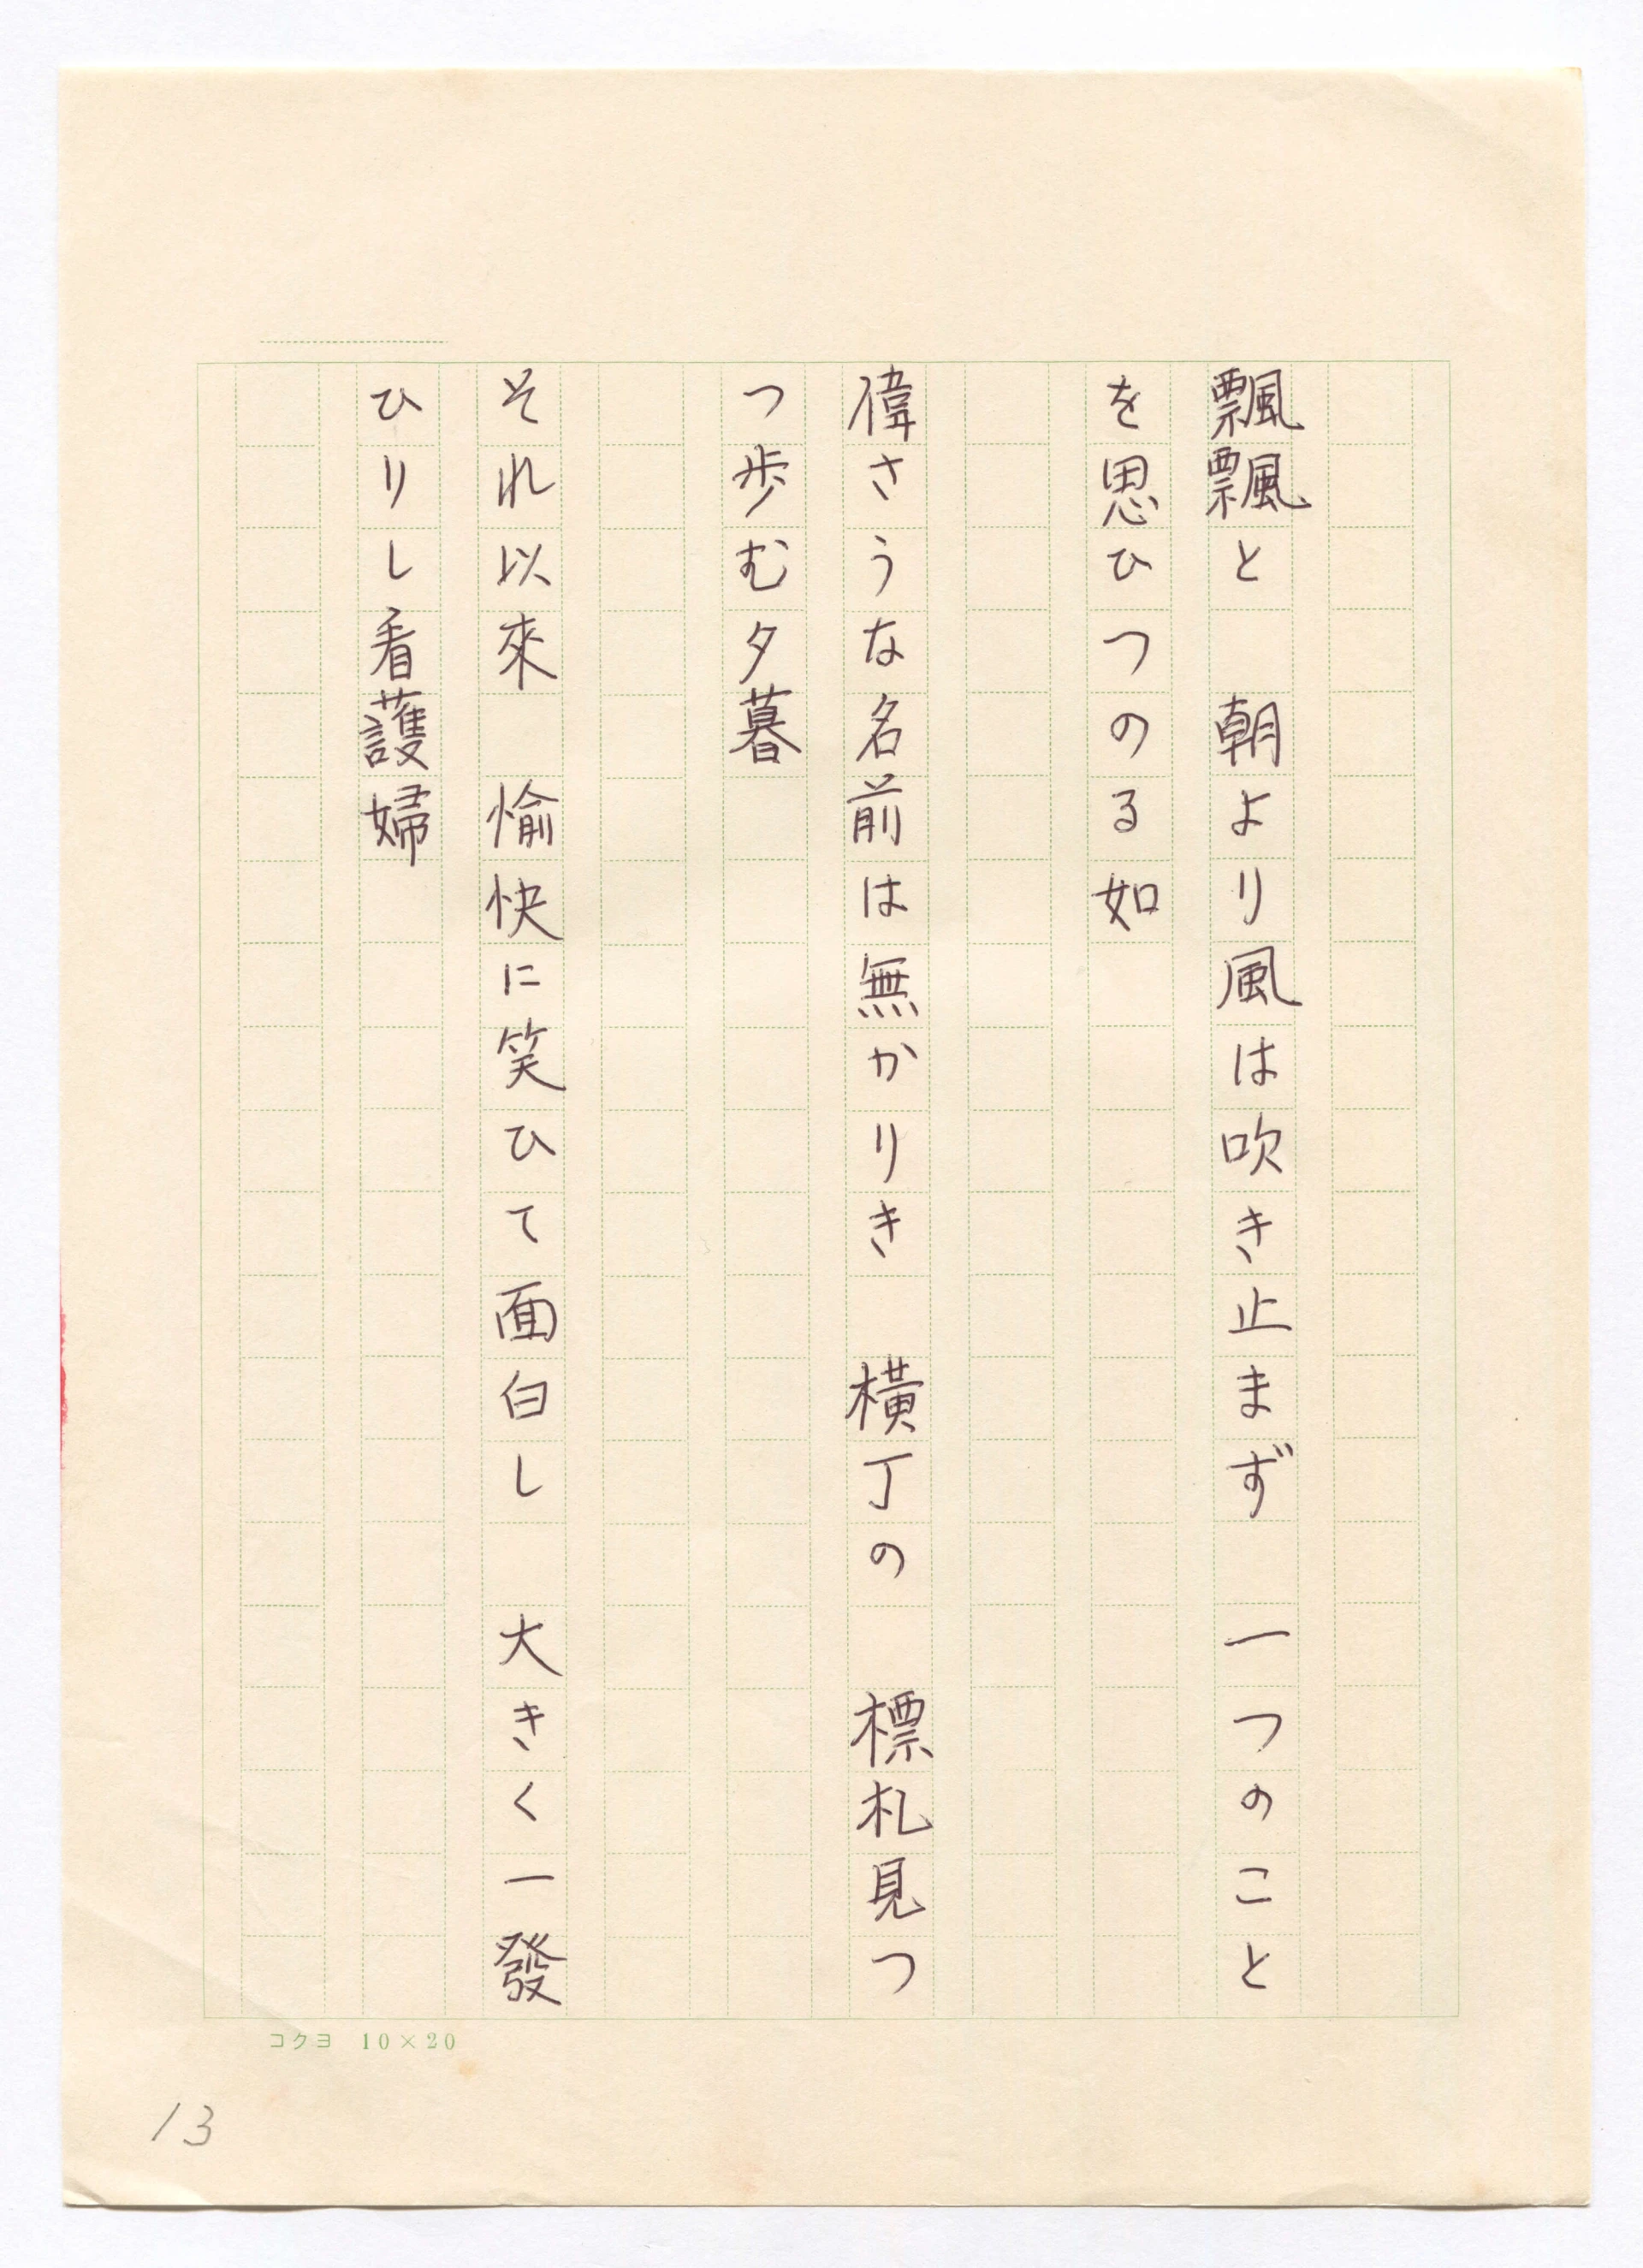 飄飄と　朝より風は吹き止まず　一つのこと
を思ひつのる如
偉さうな名前は無かりき　横丁の　標札見つ
つ歩む夕暮
それ以來　愉快に笑ひて面白し　大きく一發
ひりし看護婦
コクヨ 10×20
13